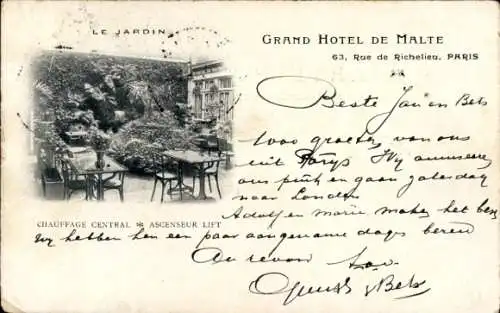 LE JARDIN
GRAND HOTEL DE MALTE
63, Rue de Richelieu, PARIS
Beste Jan en Bets
1000 groeten van ons
uit Parijs Wij amuseeren
ons prins en gaan zaterdag
naar London
Adolf en marie maken het best
CHAUFFAGE CENTRAL ASCENSEUR LIFT
Wij hebben hen een paar aangename dagen bereid
Au revoir
Bets